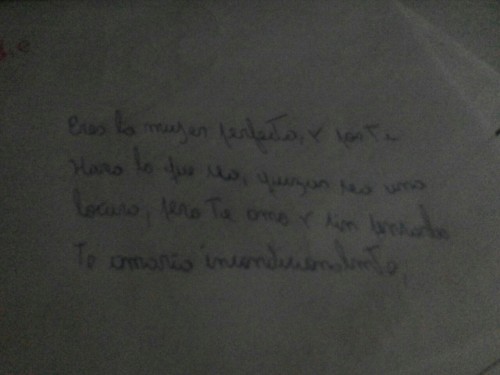 Eres la mujer perfecta, y por Ti
Hara lo que sea, quizas sea una
locura, pero Te amo y sin pensarlo
Te amaria incondicionalmente,